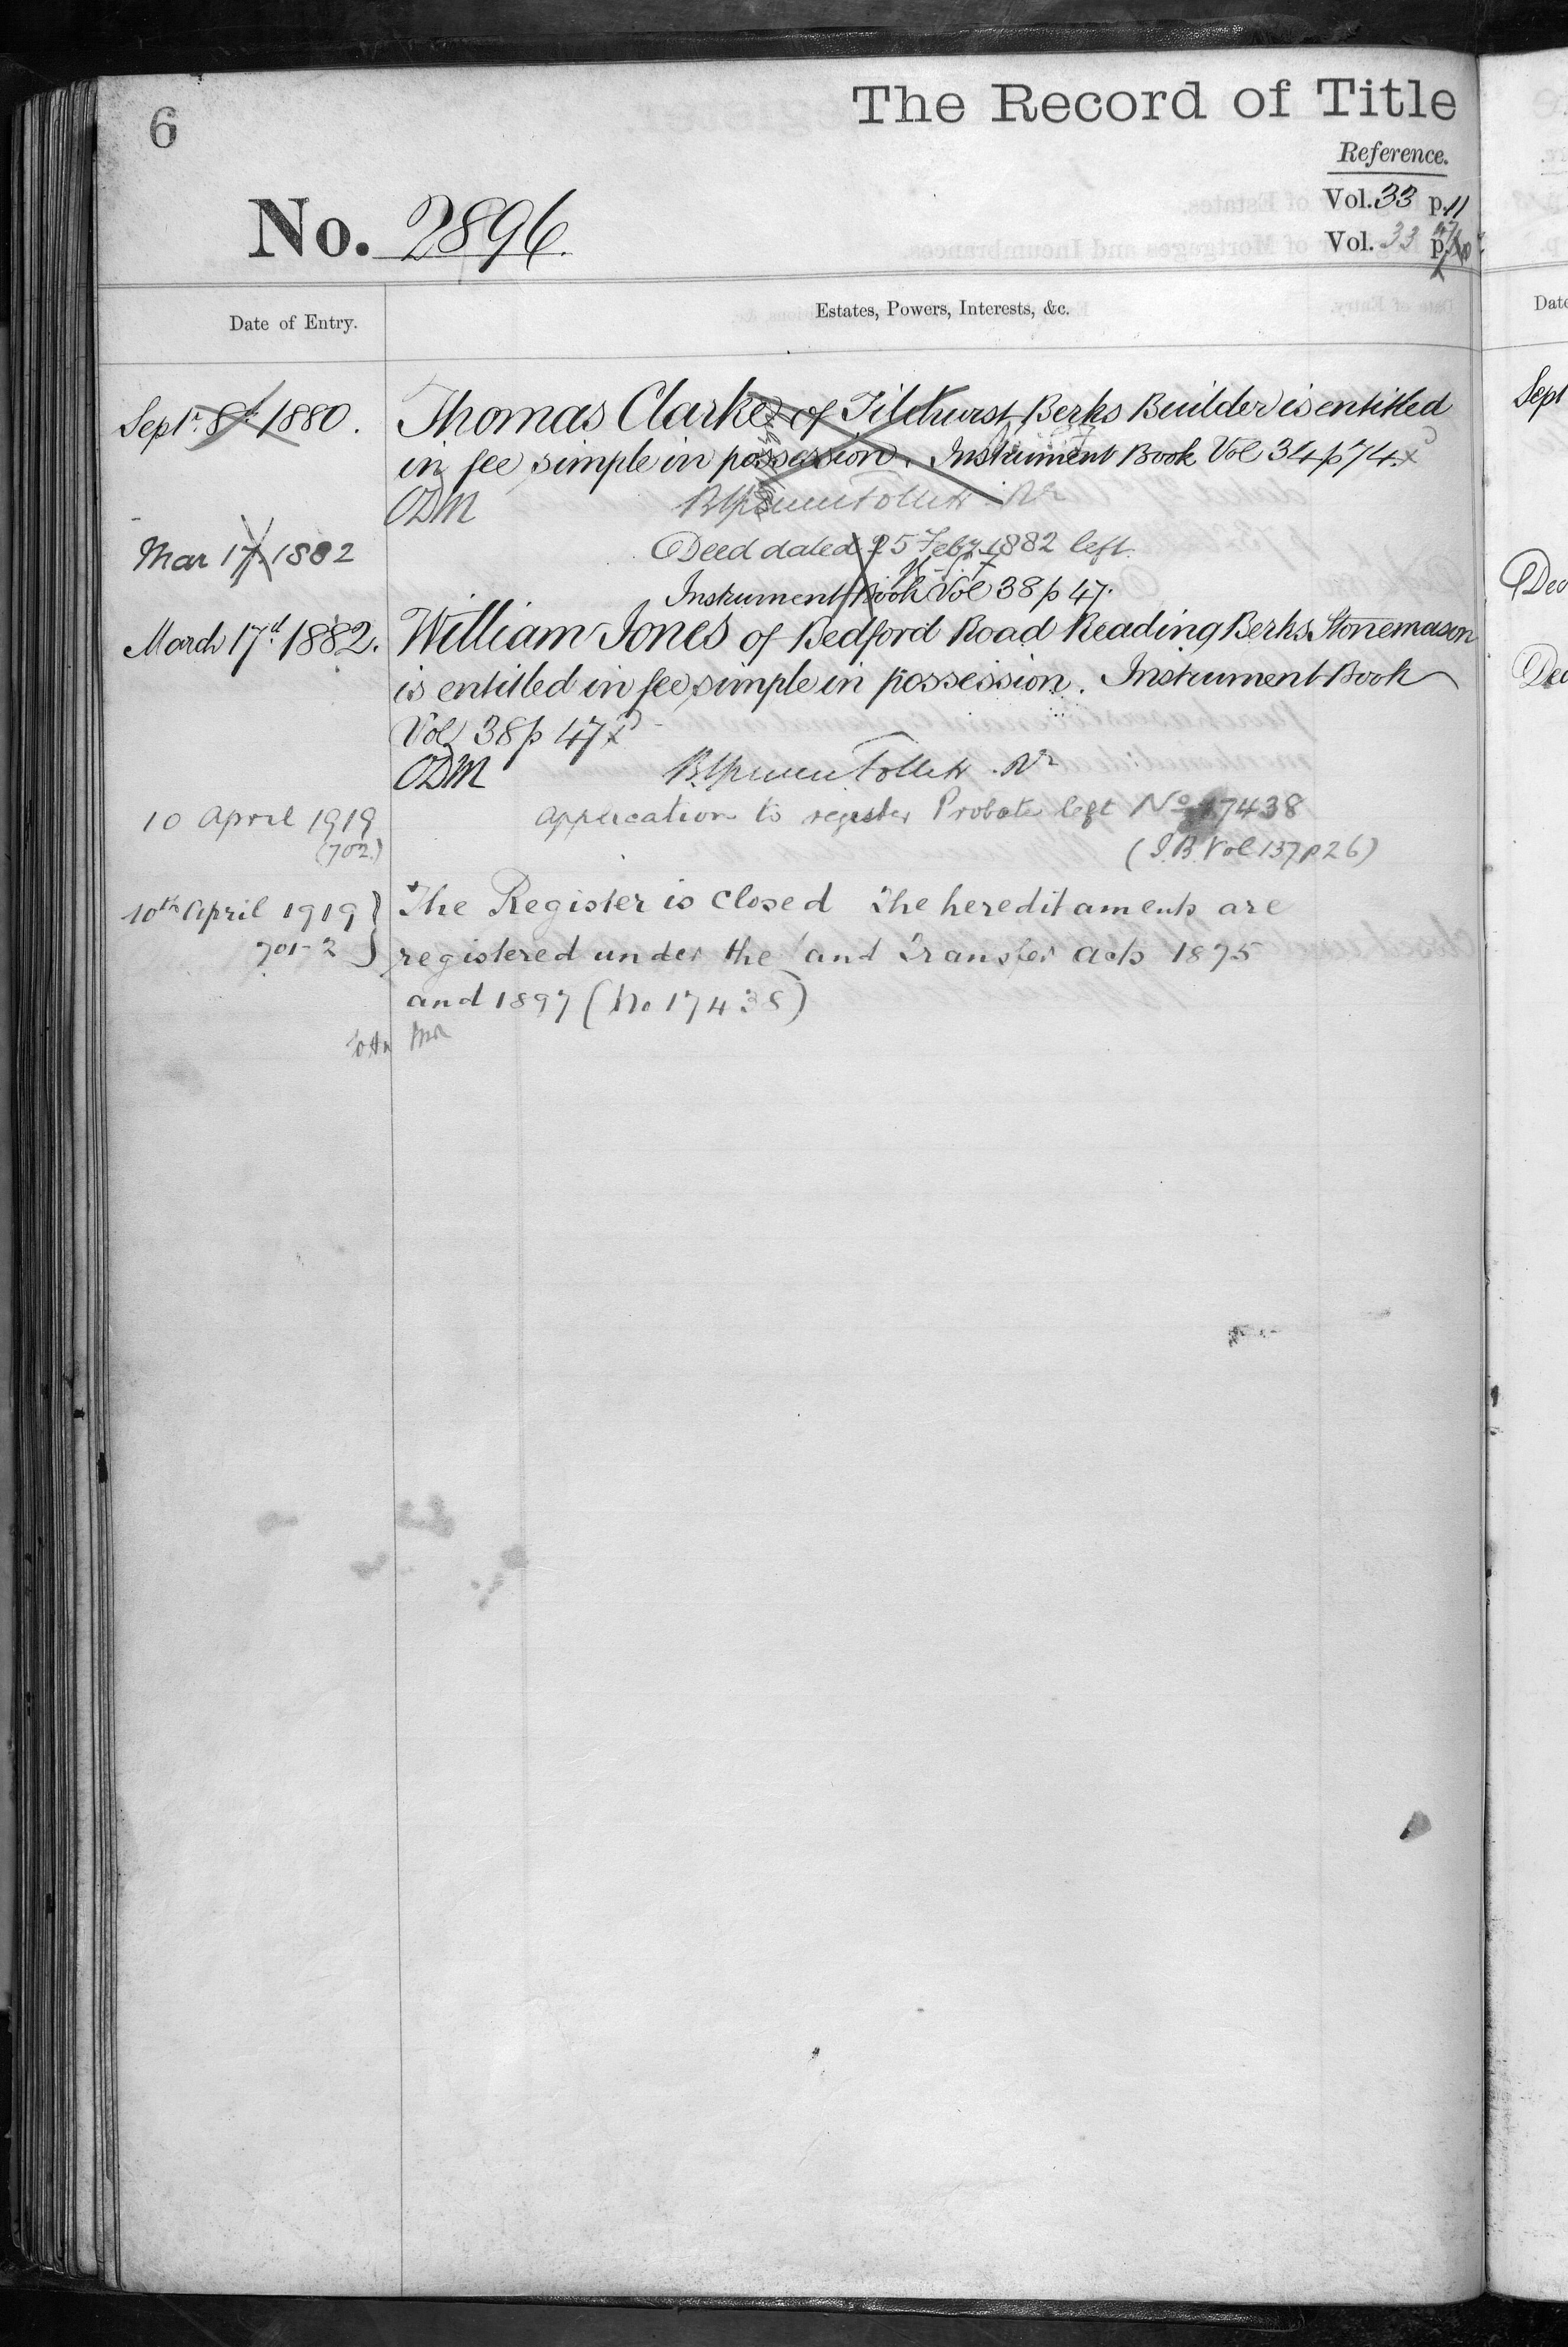 6
The Record of Title
Reference.
Vol. 33 p. 11
No. 2896.
Vol. 33 p.
Date of Entry.
Estates, Powers, Interests, &c.
Sept. 8th 1880.
Thomas Clarke of Tilehurst Berks Builder is entitled
in fee simple in possession. Instrument Book Vol 34 p 74.
ODM
Mar 17. 1882
Deed dated 25 Feby. 1882 left.
Instrument Book Vol 38 p 47.
March 17th 1882.
William Jones of Bedford Road Reading Berks Stonemason
is entitled in fee simple in possession. Instrument Book
Vol 38 p 47
ODM
10 April 1919
application to register Probate left No 17438
(702.)
(I.B. Vol 137 p 26)
10th April 1919
The Register is closed The hereditaments are
701-2
registered under the Land Transfer Acts 1875
and 1897 (No 17438)
Date
Sept
Dec
Dec